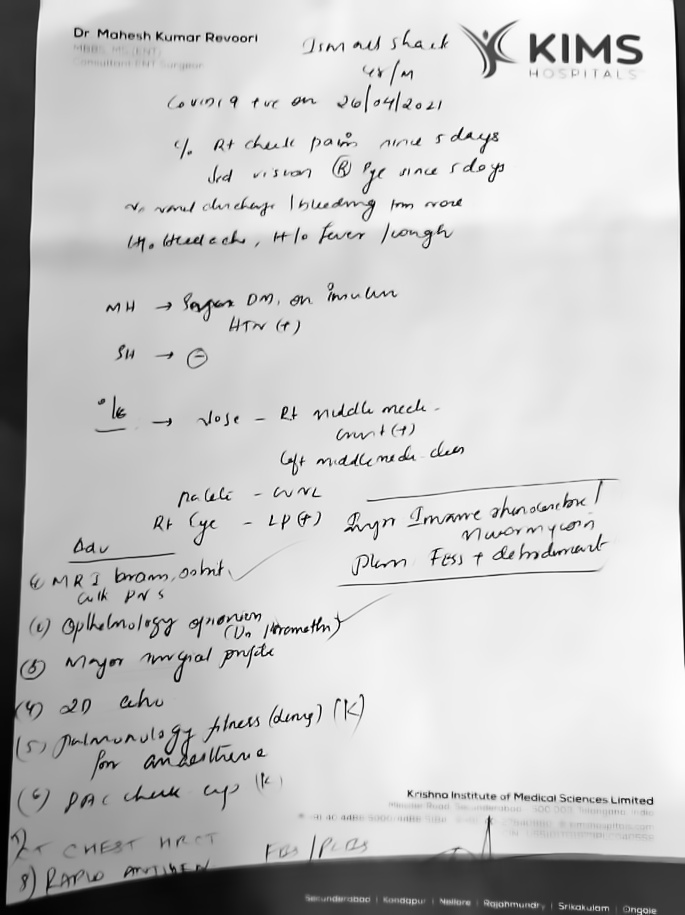 Dr Mahesh Kumar Revoori
MBBS, MS (ENT)
Consultant ENT Surgeon
KIMS
HOSPITALS
Ismail shaik
/M
Covid 19 +ve on 26/04/2021
c/o Rt cheek pain since 5 days
vision (R) Eye since 5 days
No nasal discharge / bleeding from nose
H/o Headache, H/o fever / cough
MH → DM, on insulin
HTN (+)
SH → ⊖
O/E → Nose - Rt middle meatus
crust (+)
left middle meatus clear
palate - WNL
Rt Eye - LP (+)
Invasive rhinocerebral
Mucormycosis
Plan FESS + debridement
Adv
(1) MRI brain, orbit
with PNS
(2) Opthelmology opinion
(3) Major surgical profile
(4) 2D echo
(5) pulmonology fitness (K)
for anaesthesia
(6) PAC check up (K)
7) CT CHEST HRCT
8) RAPID ANTIGEN
FBS / PLBS
Krishna Institute of Medical Sciences Limited
Secunderabad | Kondapur | Nellore | Rajahmundry | Srikakulam | Ongole